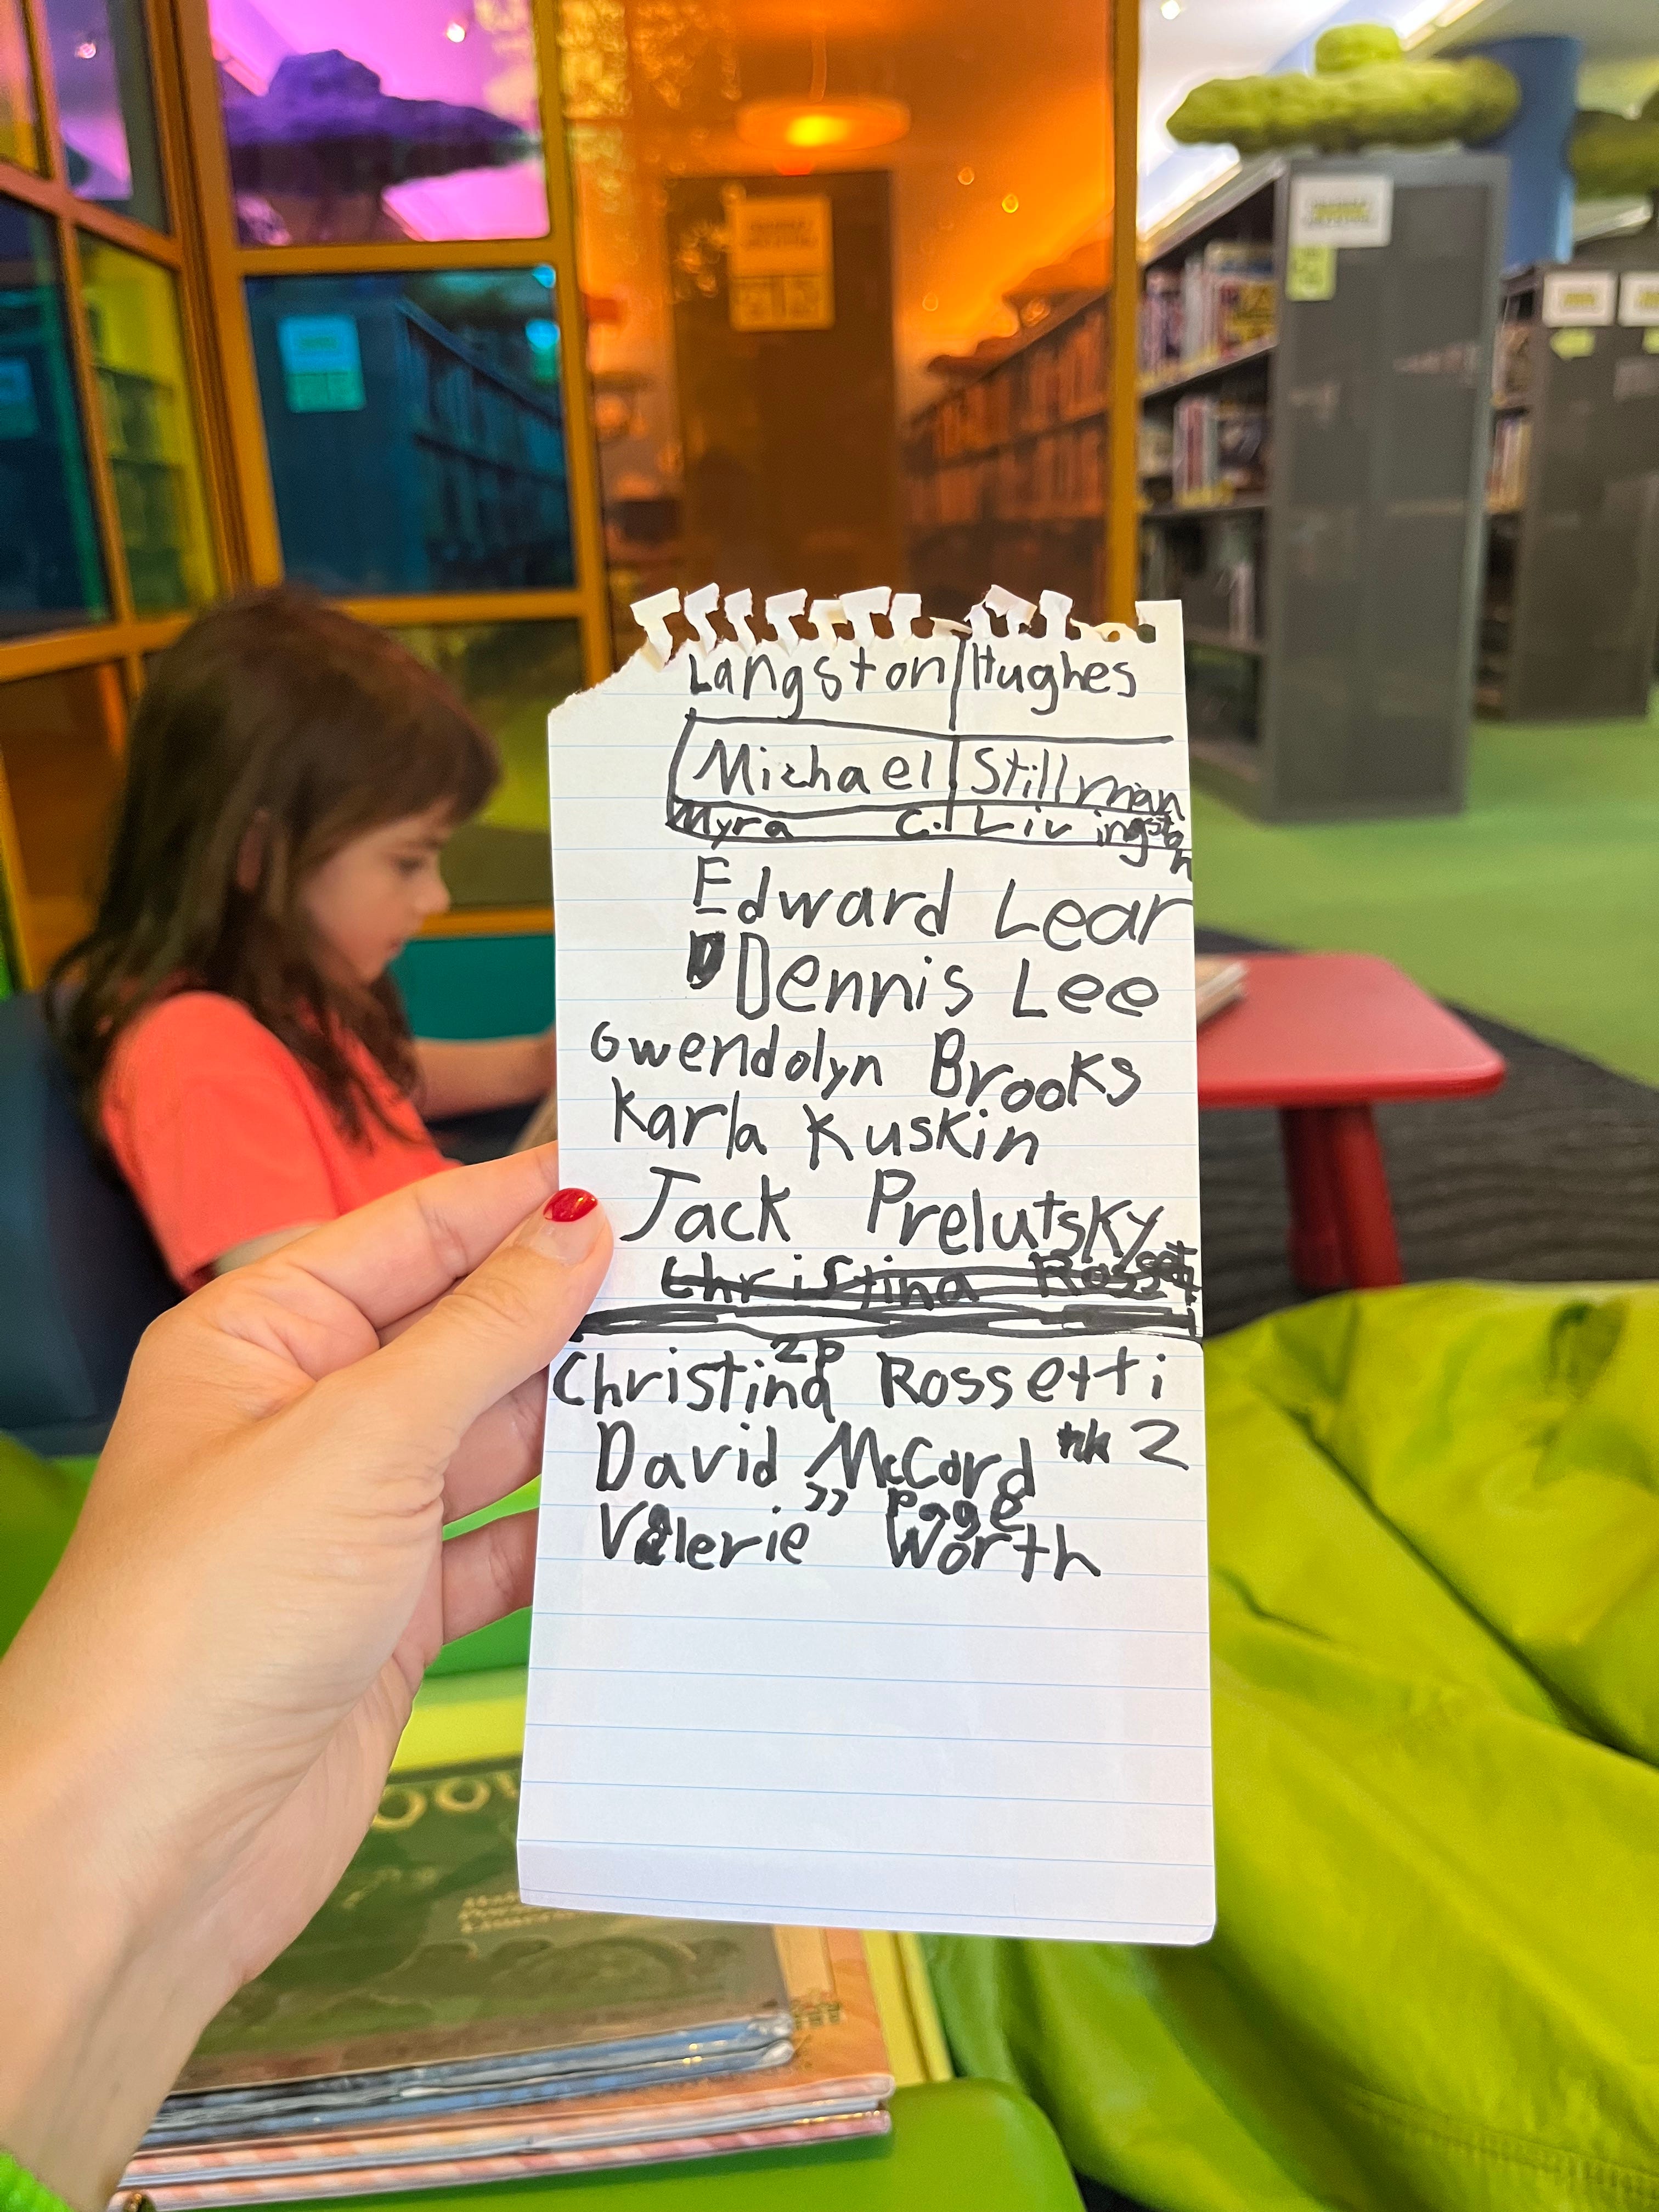 Langston Hughes
Michael Stillman
Myra C. Livingston
Edward Lear
Dennis Lee
Gwendolyn Brooks
Karla Kuskin
Jack Prelutsky
Christina Rossett
2P
Christina Rossetti
David McCord 2
" Page
Valerie Worth